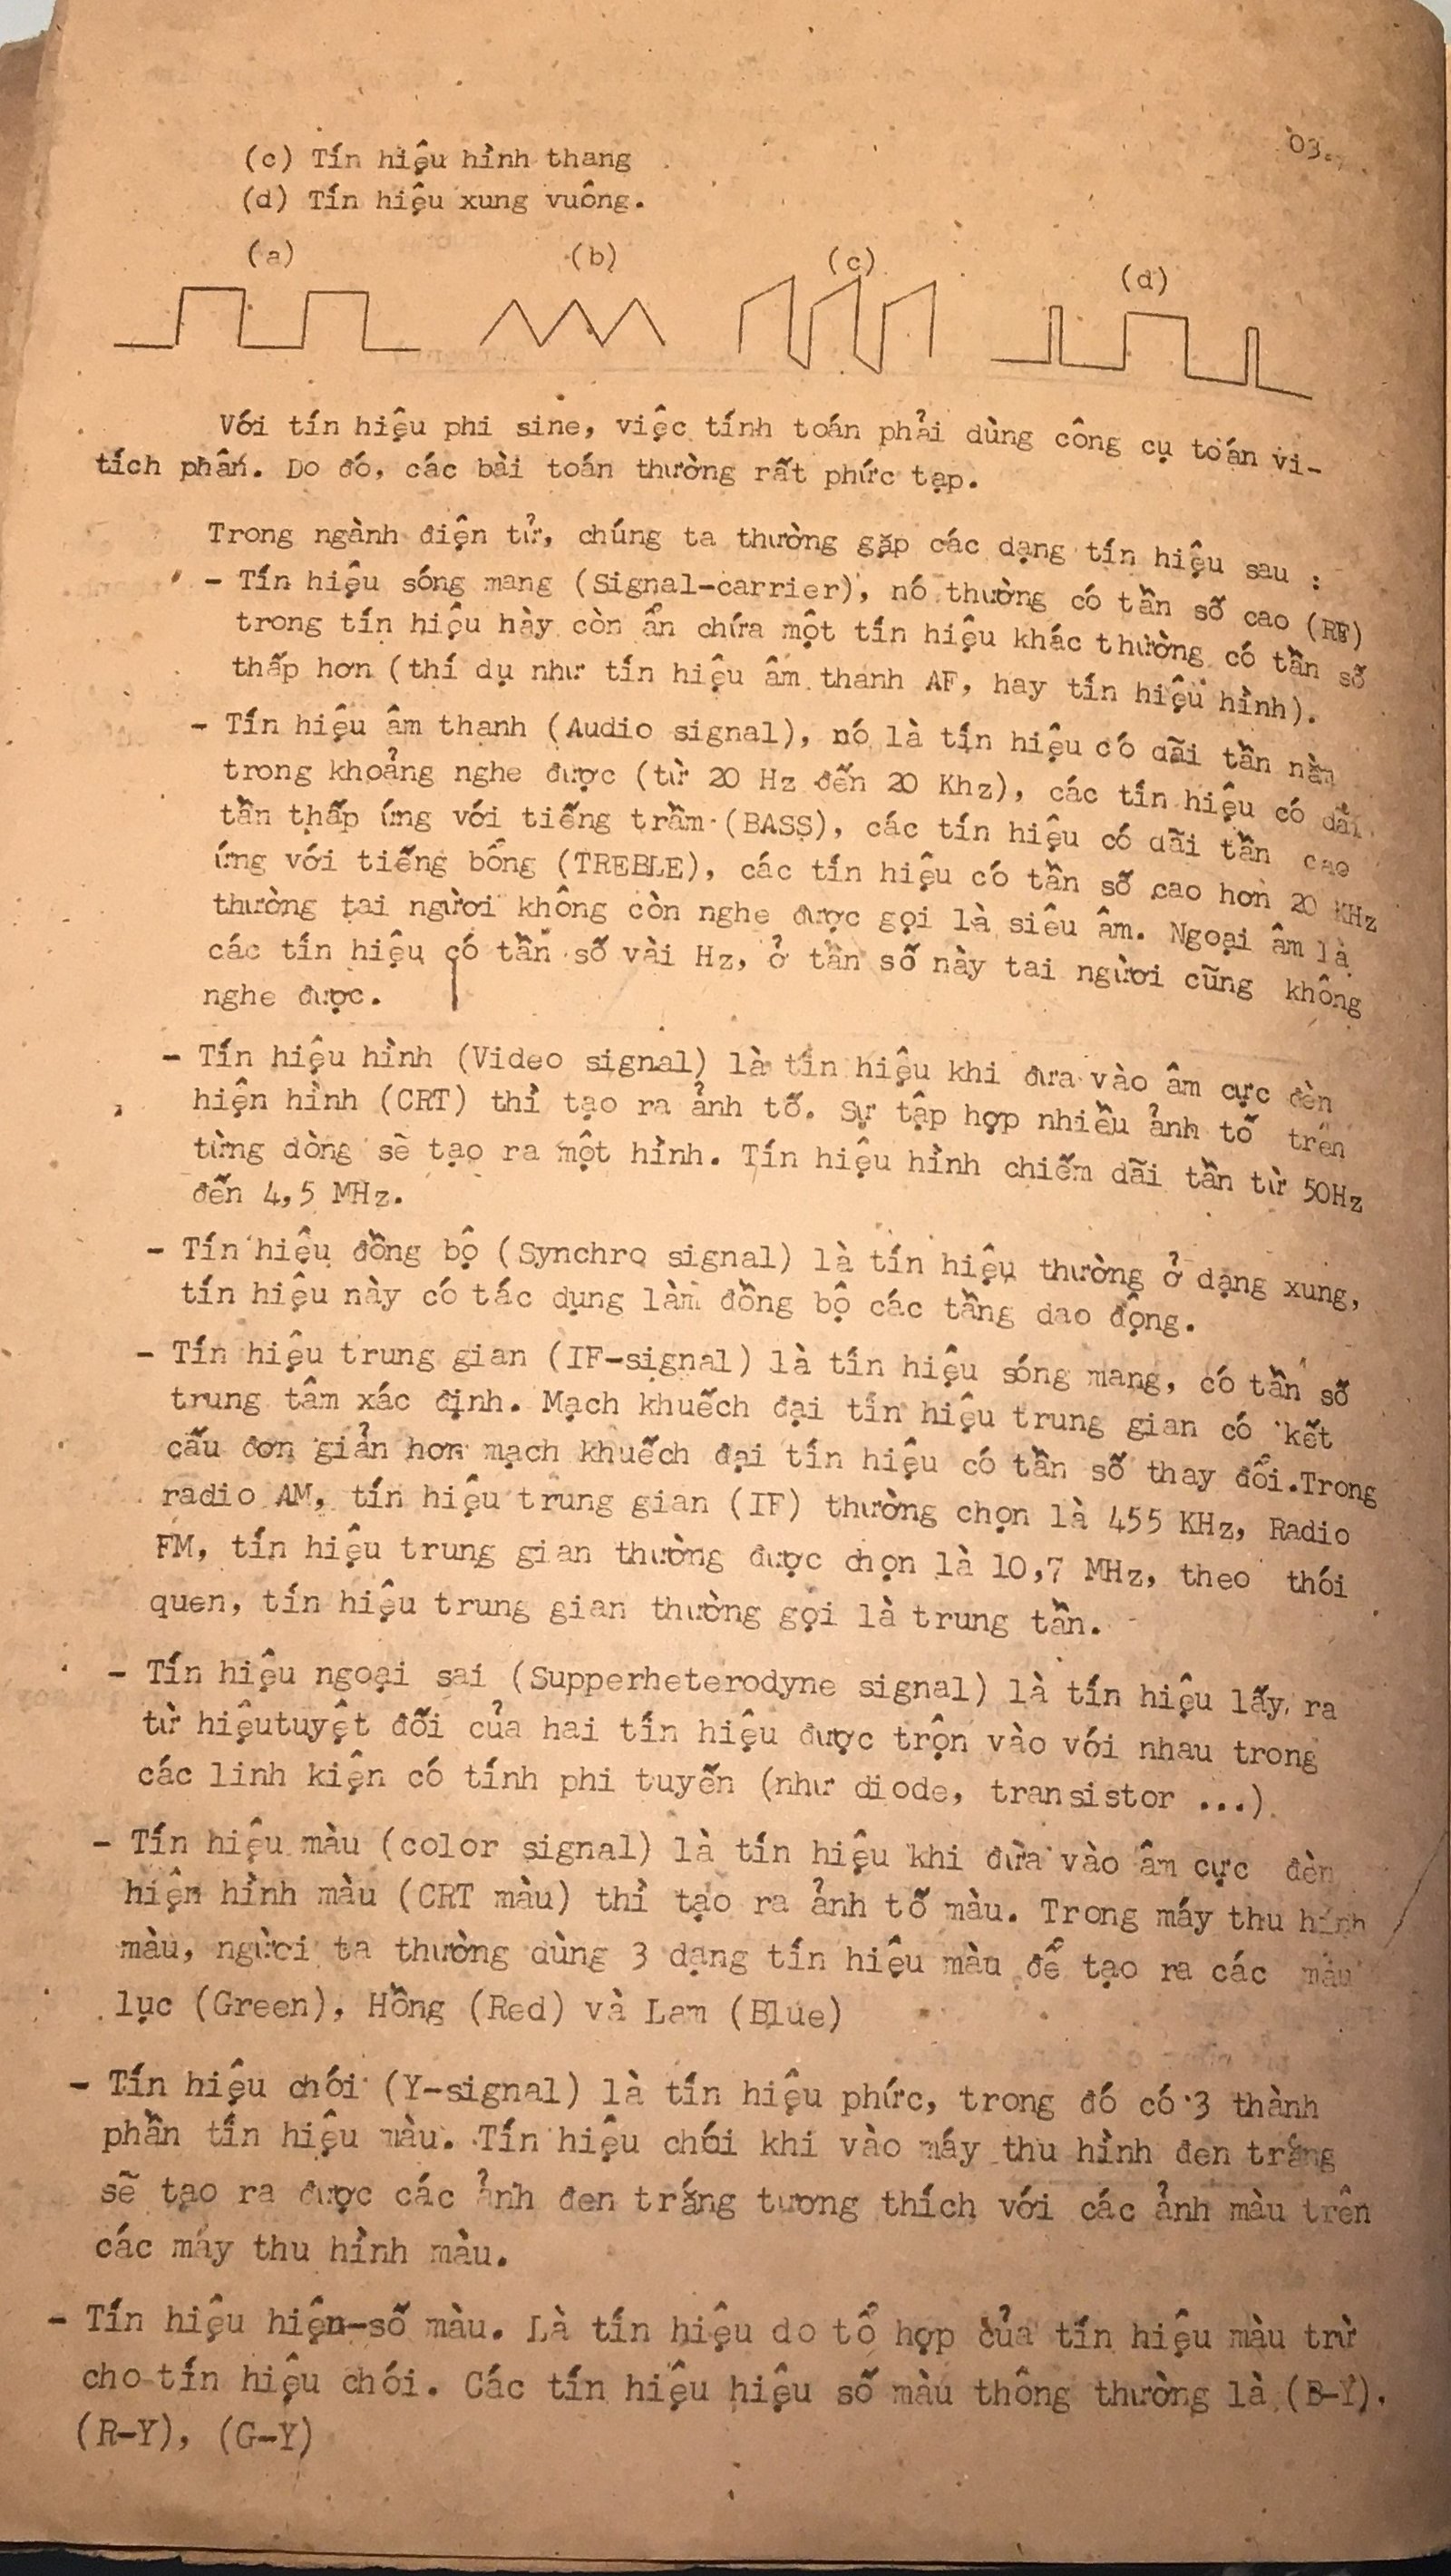 03.
(c) Tín hiệu hình thang
(d) Tín hiệu xung vuông.
(a) (b) (c) (d)
Với tín hiệu phi sine, việc tính toán phải dùng công cụ toán vi-
tích phân. Do đó, các bài toán thường rất phức tạp.
Trong ngành điện tử, chúng ta thường gặp các dạng tín hiệu sau :
- Tín hiệu sóng mang (Signal-carrier), nó thường có tần số cao (RF)
trong tín hiệu hày còn ẩn chứa một tín hiệu khác thường có tần số
thấp hơn (thí dụ như tín hiệu âm thanh AF, hay tín hiệu hình).
- Tín hiệu âm thanh (Audio signal), nó là tín hiệu có dãi tần nằm
trong khoảng nghe được (từ 20 Hz đến 20 Khz), các tín hiệu có dãi
tần thấp ứng với tiếng trầm (BASS), các tín hiệu có dãi tần cao
ứng với tiếng bổng (TREBLE), các tín hiệu có tần số cao hơn 20 KHz
thường tai người không còn nghe được gọi là siêu âm. Ngoại âm là
các tín hiệu có tần số vài Hz, ở tần số này tai người cũng không
nghe được.
- Tín hiệu hình (Video signal) là tín hiệu khi đưa vào âm cực đèn
hiện hình (CRT) thì tạo ra ảnh tố. Sự tập hợp nhiều ảnh tố trên
từng dòng sẽ tạo ra một hình. Tín hiệu hình chiếm dãi tần từ 50Hz
đến 4,5 MHz.
- Tín hiệu đồng bộ (Synchro signal) là tín hiệu thường ở dạng xung,
tín hiệu này có tác dụng làm đồng bộ các tầng dao động.
- Tín hiệu trung gian (IF-signal) là tín hiệu sóng mang, có tần số
trung tâm xác định. Mạch khuếch đại tín hiệu trung gian có kết
cấu đơn giản hơn mạch khuếch đại tín hiệu có tần số thay đổi.Trong
radio AM, tín hiệu trung gian (IF) thường chọn là 455 KHz, Radio
FM, tín hiệu trung gian thường được chọn là 10,7 MHz, theo thói
quen, tín hiệu trung gian thường gọi là trung tần.
- Tín hiệu ngoại sai (Supperheterodyne signal) là tín hiệu lấy ra
từ hiệutuyệt đối của hai tín hiệu được trộn vào với nhau trong
các linh kiện có tính phi tuyến (như diode, transistor ...)
- Tín hiệu màu (color signal) là tín hiệu khi đưa vào âm cực đèn
hiện hình màu (CRT màu) thì tạo ra ảnh tố màu. Trong máy thu hình
màu, người ta thường dùng 3 dạng tín hiệu màu để tạo ra các màu
lục (Green), Hồng (Red) và Lam (Blue)
- Tín hiệu chói (Y-signal) là tín hiệu phức, trong đó có 3 thành
phần tín hiệu màu. Tín hiệu chói khi vào máy thu hình đen trắng
sẽ tạo ra được các ảnh đen trắng tương thích với các ảnh màu trên
các máy thu hình màu.
- Tín hiệu hiện-số màu. Là tín hiệu do tổ hợp của tín hiệu màu trừ
cho tín hiệu chói. Các tín hiệu hiệu số màu thông thường là (B-Y),
(R-Y), (G-Y)